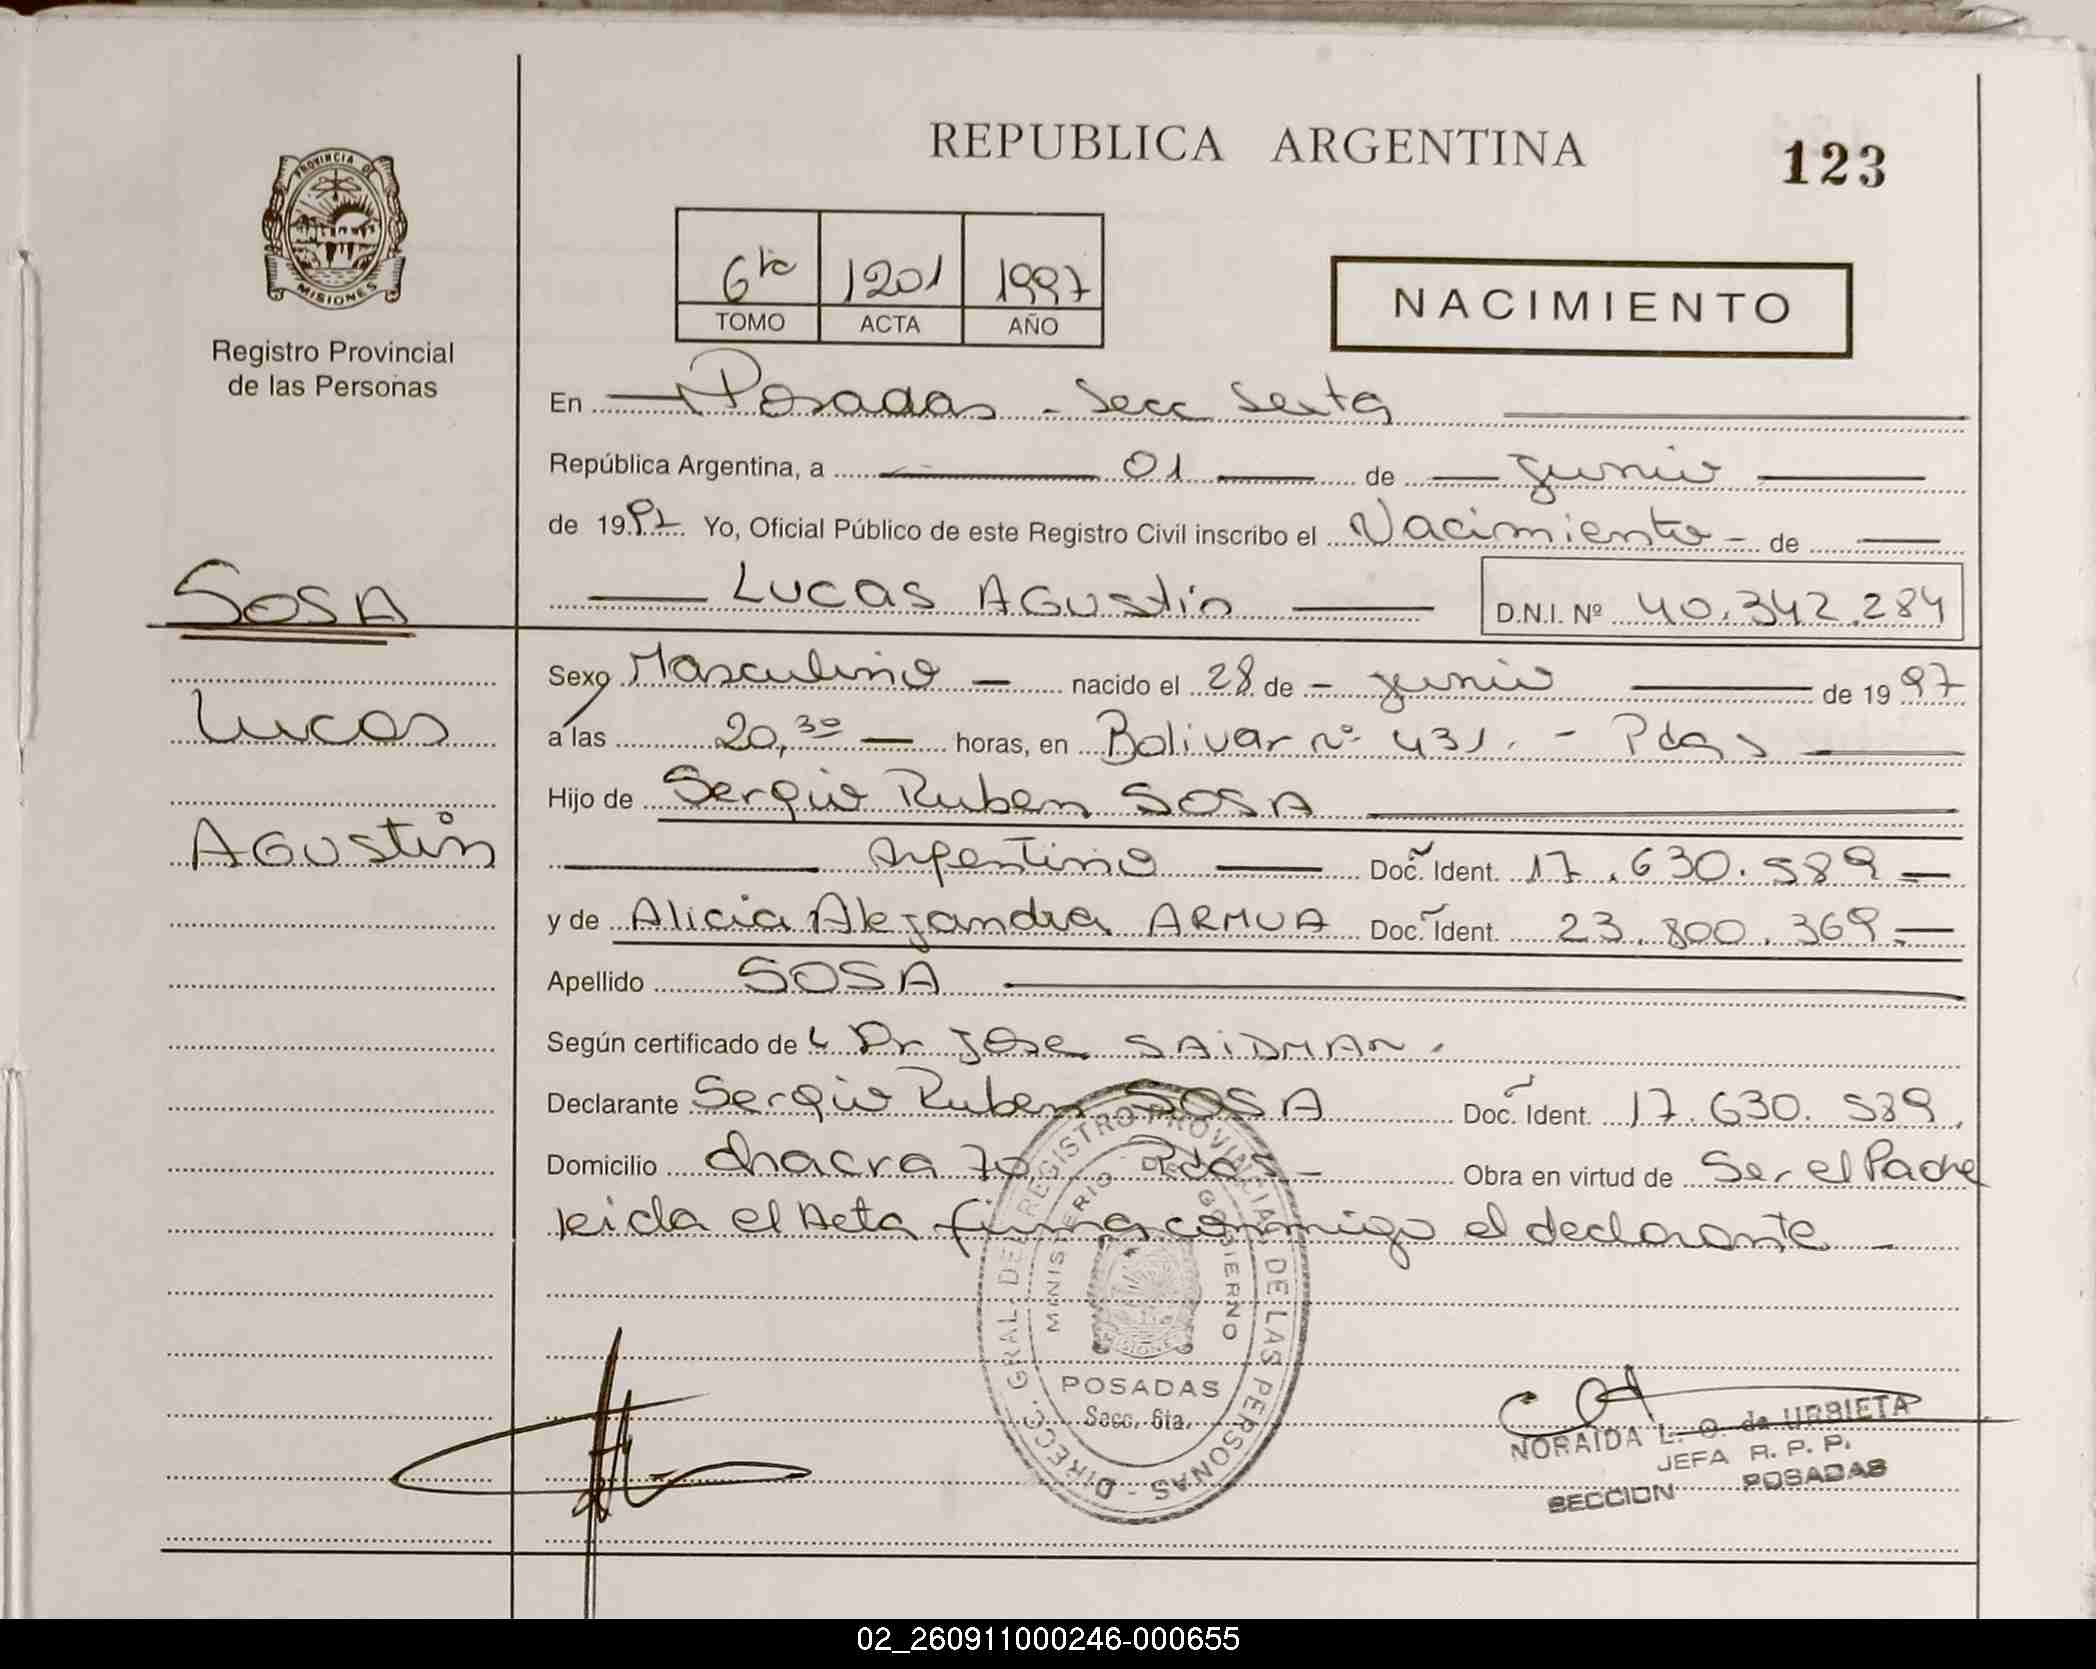 REPUBLICA ARGENTINA
123
PROVINCIA DE
MISIONES
Registro Provincial
de las Personas
6to 1201 1997
TOMO ACTA AÑO
NACIMIENTO
En Posadas - Secc Sexta
República Argentina, a 01 de Junio
de 1997 Yo, Oficial Público de este Registro Civil inscribo el Nacimiento - de
Lucas Agustin D.N.I. Nº 40.342.284
SOSA
Lucas
Agustin
Sexo Masculino nacido el 28 de - junio de 1997
a las 20,30 horas, en Bolivar nº 431. - Pdas
Hijo de Sergio Ruben SOSA
Argentino Doc. Ident. 17.630.589
y de Alicia Alejandra ARMUA Doc. Ident. 23.800.369
Apellido SOSA
Según certificado de Dr Jose SAIDMAN.
Declarante Sergio Ruben SOSA Doc. Ident. 17.630.589
Domicilio chacra 70 Pdas - Obra en virtud de Ser el Padre
leida el Acta firma conmigo el declarante -
DIRECC. GRAL. DE REGISTRO PROVINCIAL DE LAS PERSONAS -
MINISTERIO DE GOBIERNO
MISIONES
POSADAS
Secc. 6ta.
NORAIDA L. O. de URBIETA
JEFA R. P. P.
SECCION POSADAS
02_260911000246-000655